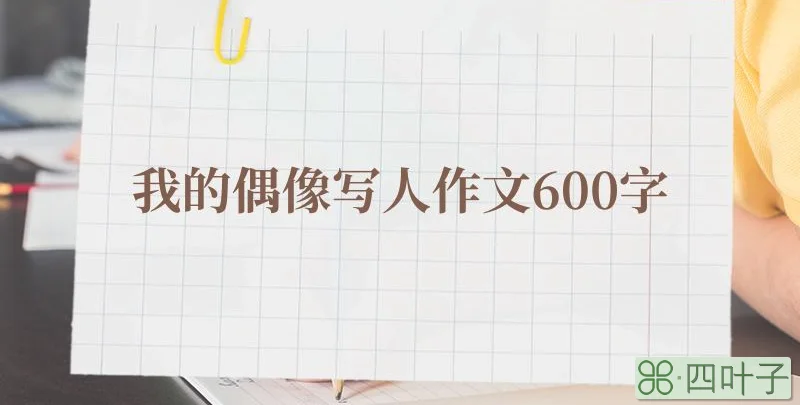 我的偶像写人作文600字
四叶子